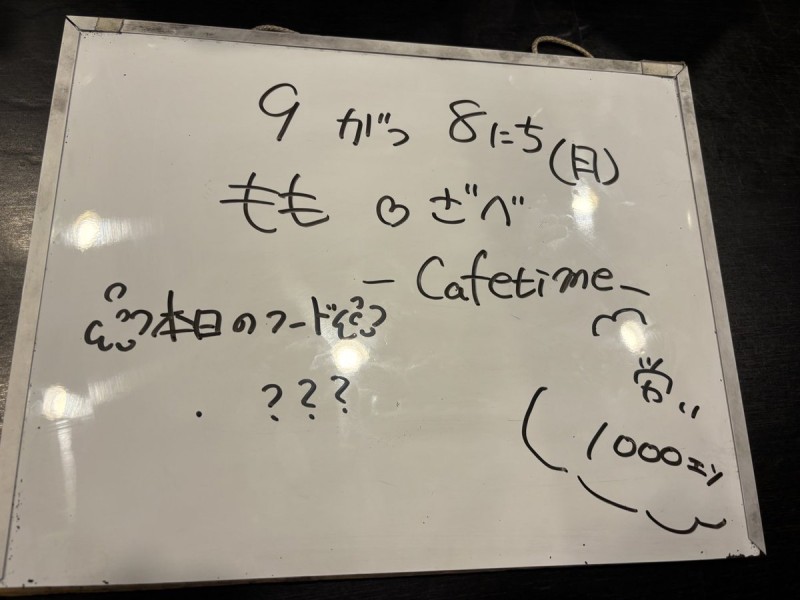 9 がつ 8にち(日)
もも ♡ ざべ
- Cafetime -
本日のフード
・ ???
1000エン